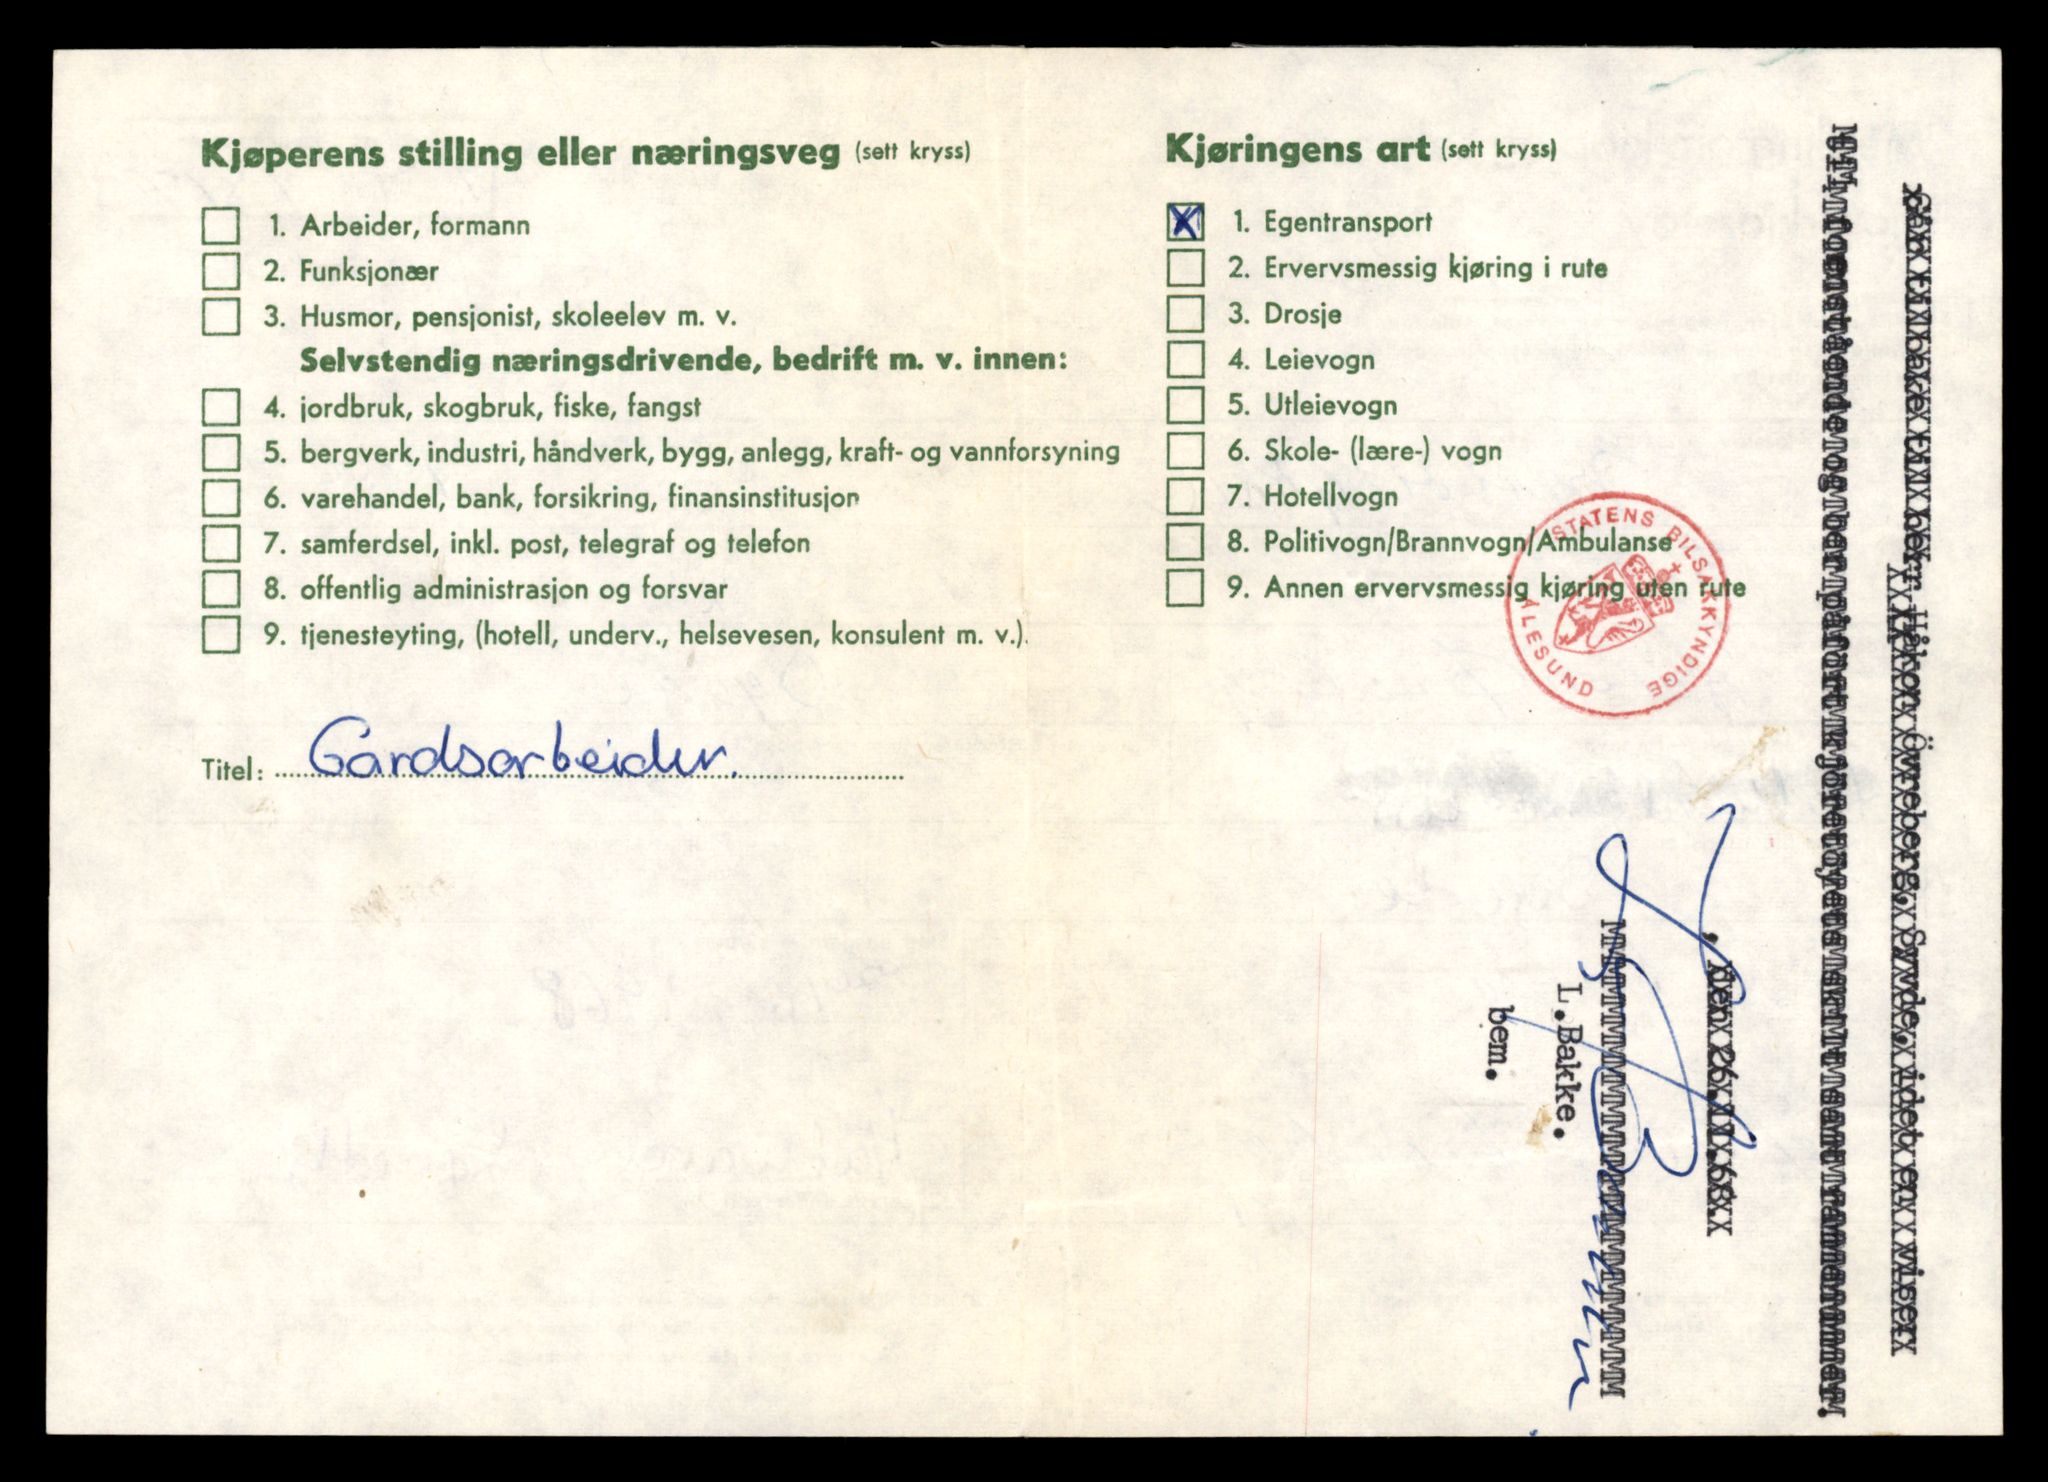 Kjøperens stilling eller næringsveg (sett kryss)
1. Arbeider, formann
2. Funksjonær
3. Husmor, pensjonist, skoleelev m. v.
Selvstendig næringsdrivende, bedrift m. v. innen:
4. jordbruk, skogbruk, fiske, fangst
5. bergverk, industri, håndverk, bygg, anlegg, kraft- og vannforsyning
6. varehandel, bank, forsikring, finansinstitusjon
7. samferdsel, inkl. post, telegraf og telefon
8. offentlig administrasjon og forsvar
9. tjenesteyting, (hotell, underv., helsevesen, konsulent m. v.).
Titel: Gardsarbeider.
Kjøringens art (sett kryss)
X 1. Egentransport
2. Ervervsmessig kjøring i rute
3. Drosje
4. Leievogn
5. Utleievogn
6. Skole- (lære-) vogn
7. Hotellvogn
8. Politivogn/Brannvogn/Ambulanse
9. Annen ervervsmessig kjøring uten rute
STATENS BILSAKKYNDIGE
ÅLESUND
tilbake til herr Håkon Övreberg, Syvde, idet en viser
den 26.11.68.
L.Bakke.
bem.